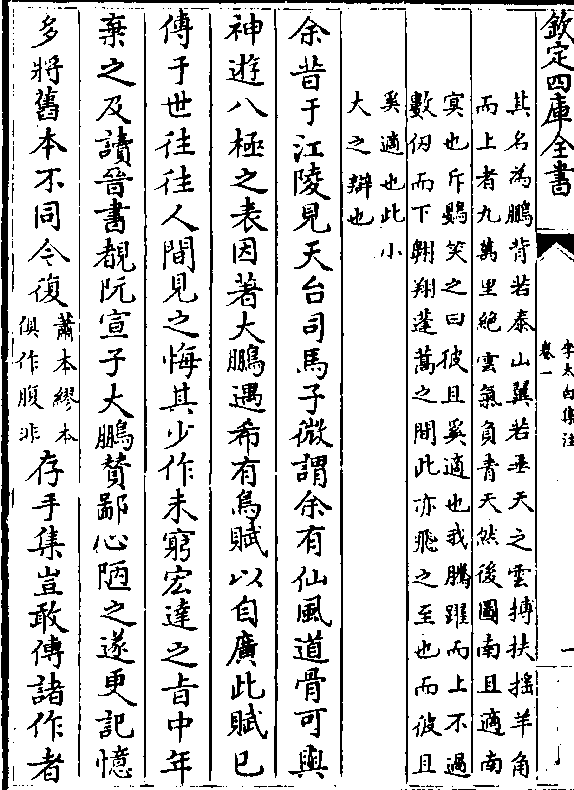 欽定四庫全書
李太白集注
卷一
一
其名為鵬背若泰山翼若垂天之雲摶扶搖羊角
而上者九萬里絕雲氣負青天然後圖南且適南
冥也斥鷃笑之曰彼且奚適也我騰躍而上不過
數仞而下翺翔蓬蒿之間此亦飛之至也而彼且
奚適也此小
大之辯也
余昔于江陵見天台司馬子微謂余有仙風道骨可與
神遊八極之表因著大鵬遇希有鳥賦以自廣此賦已
傳于世往往人間見之悔其少作未窮宏達之旨中年
棄之及讀晉書覩阮宣子大鵬賛鄙心陋之遂更記憶
多將舊本不同今復
蕭本繆本
俱作腹非
存手集豈敢傳諸作者